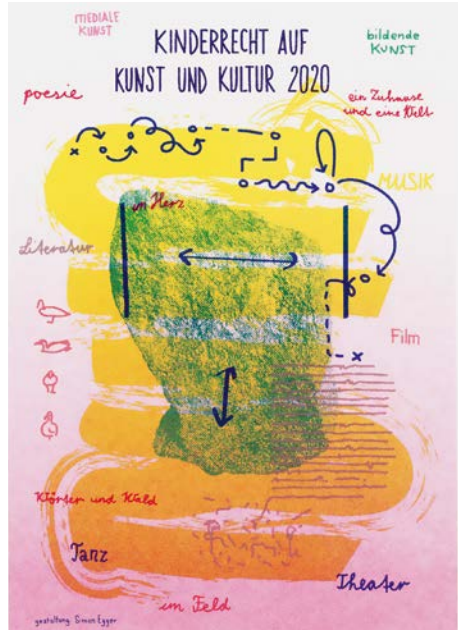 MEDIALE
KUNST
KINDERRECHT AUF
KUNST UND KULTUR 2020
bildende
KUNST
poesie
ein Zuhause
und eine Welt
MUSIK
im Herz
Literatur
Film
Wörter und Wald
Tanz
Theater
im Feld
gestaltung Simon Egger